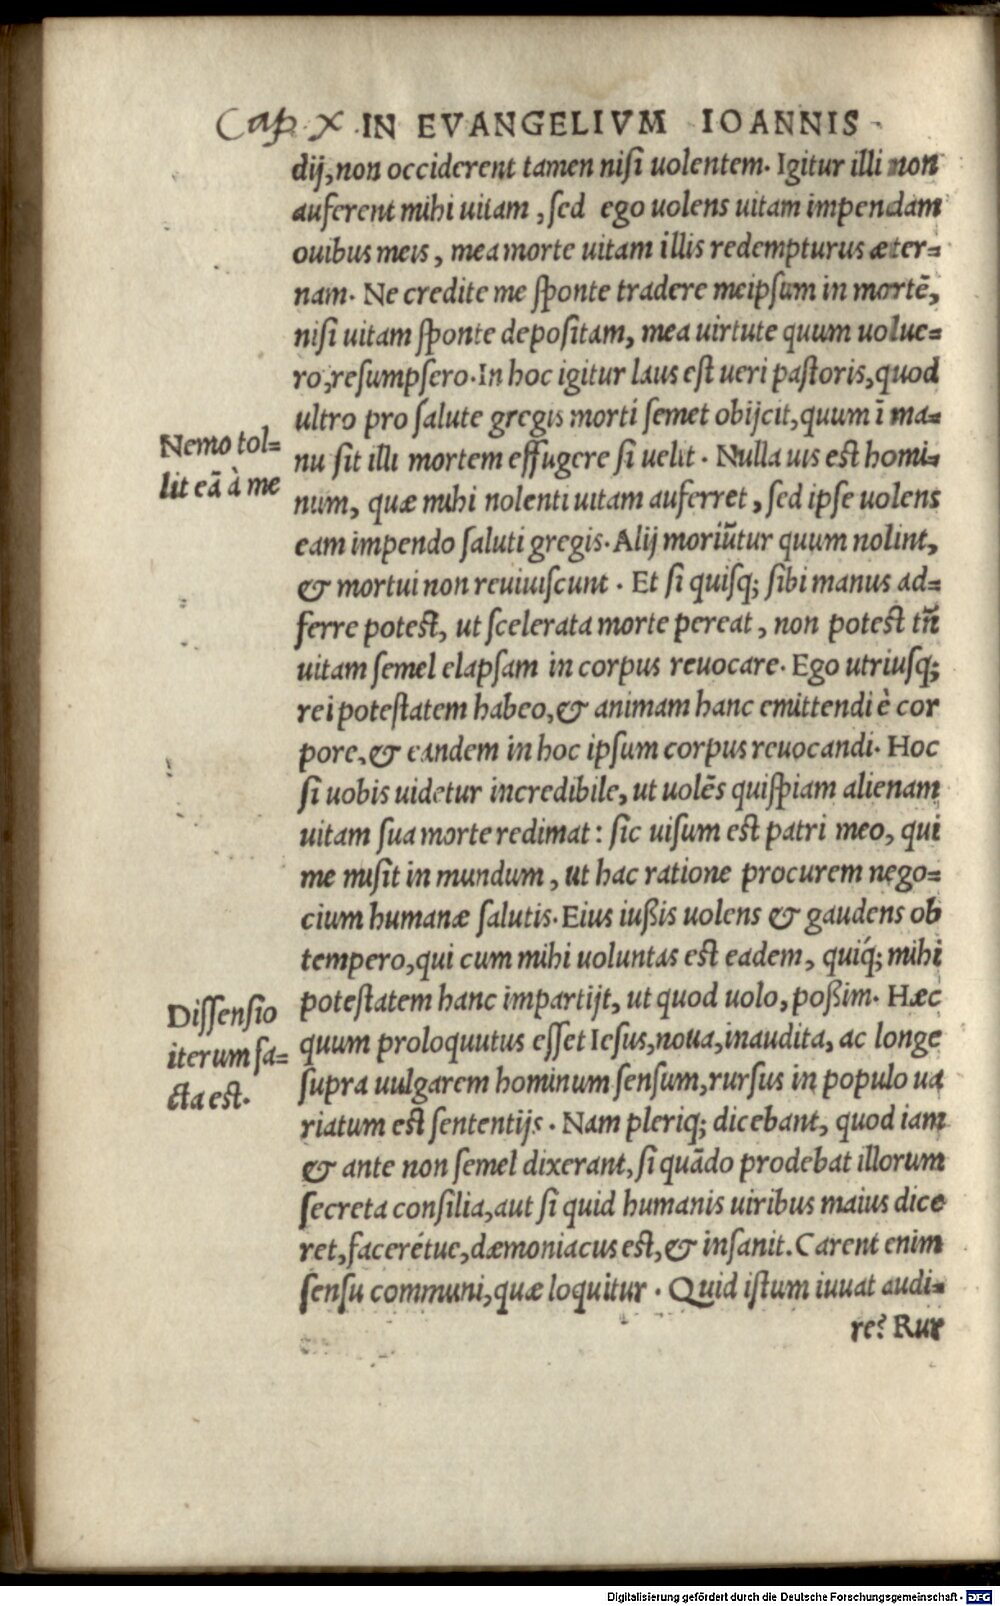 Cap. X IN EVANGELIVM IOANNIS
dij, non occiderent tamen nisi uolentem. Igitur illi non
auferent mihi uitam, sed ego uolens uitam impendam
ouibus meis, mea morte uitam illis redempturus æter=
nam. Ne credite me sponte tradere meipsum in mortē,
nisi uitam sponte depositam, mea uirtute quum uolue=
ro, resumpsero. In hoc igitur laus est ueri pastoris, quod
ultro pro salute gregis morti semet obijcit, quum ī ma=
Nemo tol=
lit eā à me
nu sit illi mortem effugere si uelit. Nulla uis est homi=
num, quæ mihi nolenti uitam auferret, sed ipse uolens
eam impendo saluti gregis. Alij moriūtur quum nolint,
& mortui non reuiuiscunt. Et si quisq; sibi manus ad=
ferre potest, ut scelerata morte pereat, non potest tñ
uitam semel elapsam in corpus reuocare. Ego utriusq;
rei potestatem habeo, & animam hanc emittendi è cor
pore, & eandem in hoc ipsum corpus reuocandi. Hoc
si uobis uidetur incredibile, ut uolēs quispiam alienam
uitam sua morte redimat: sic uisum est patri meo, qui
me misit in mundum, ut hac ratione procurem nego=
cium humanæ salutis. Eius iußis uolens & gaudens ob
tempero, qui cum mihi uoluntas est eadem, quiq́; mihi
potestatem hanc impartijt, ut quod uolo, poßim. Hæc
Dissensio
iterum fa=
cta est.
quum proloquutus esset Iesus, noua, inaudita, ac longe
supra uulgarem hominum sensum, rursus in populo ua
riatum est sententijs. Nam pleriq; dicebant, quod iam
& ante non semel dixerant, si quādo prodebat illorum
secreta consilia, aut si quid humanis uiribus maius dice
ret, facerétue, dæmoniacus est, & insanit. Carent enim
sensu communi, quæ loquitur. Quid istum iuuat audi=
re? Rur
Digitalisierung gefördert durch die Deutsche Forschungsgemeinschaft - DFG